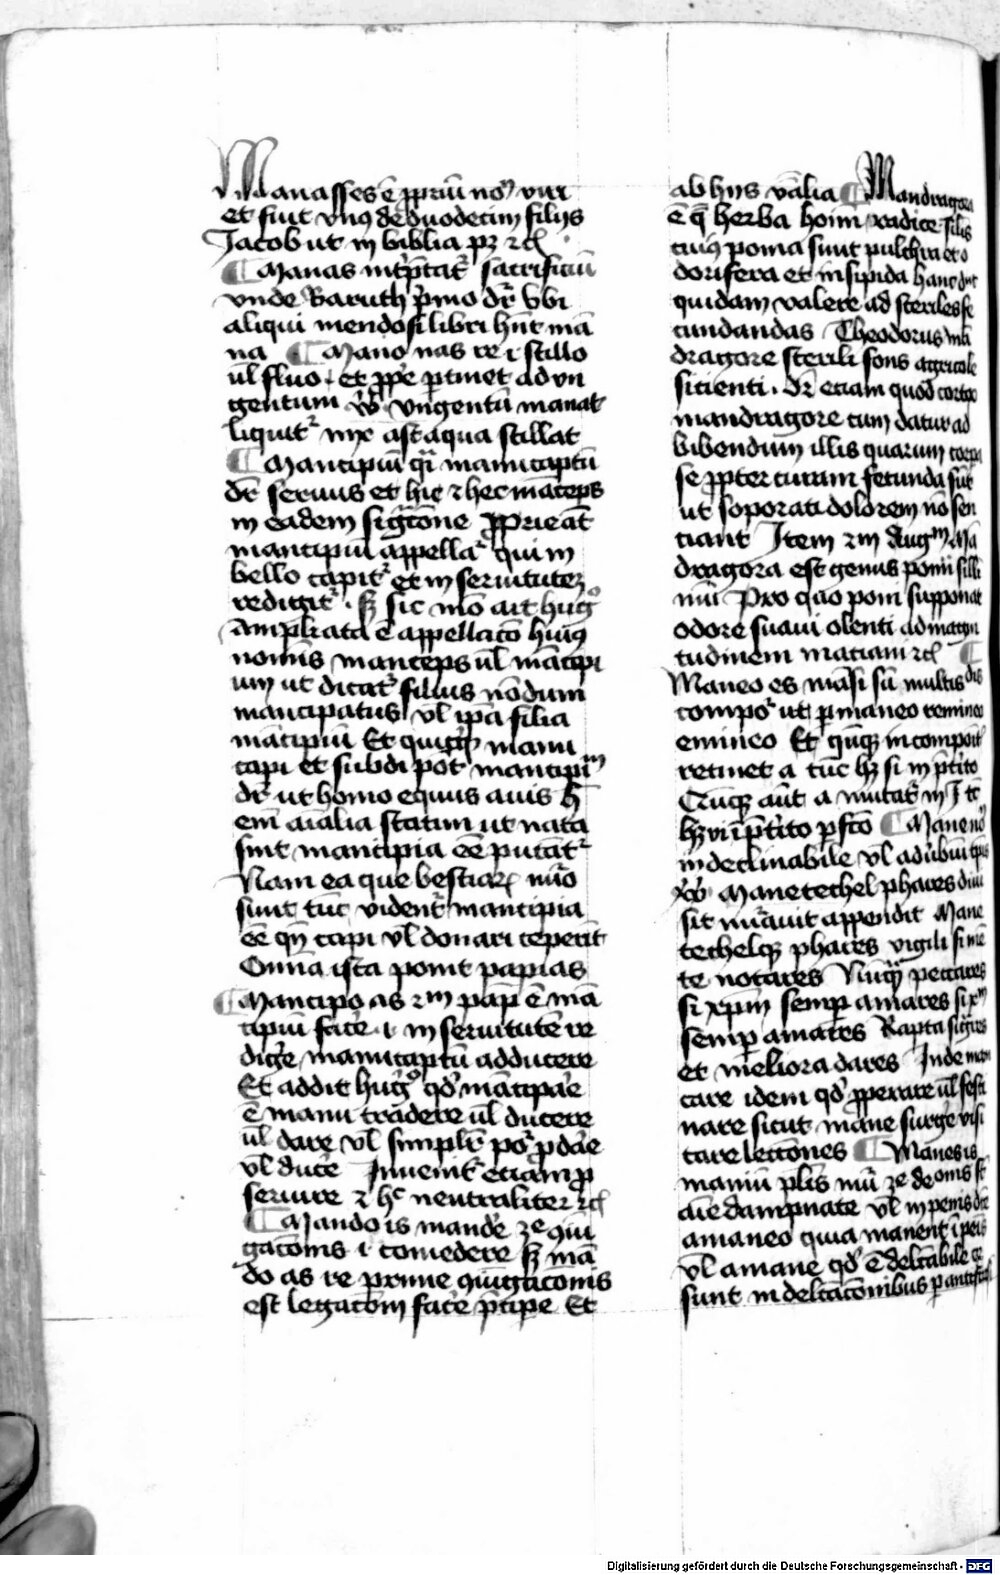 Manasses ē ꝓpriū nomē viri
et fuit vnꝰ de duodecim filijs
Jacob ut in biblia pꝫ ⁊cꝭ
Manas int̄ptatᷓ sacrificiū
vnde Baruth pͥmo dr̄ Vbi
aliqui mendosi libri hn̄t mā
na Mano nas re i stillo
ul̄ fluo et ꝓpͥe ptinet ad vn
gentum vṽ Vngentū manat
liquitᷓ nix ast aqua stillat
Mancipiū qͥ manucaptū
dr̄ seruus et hic ⁊ hec māceps
in eadem sigͥcōne ꝓprie āt
mancipiū appellatᷓ qui in
bello capitᷓ et in seruitutē
redigitᷓ Sꝫ sic ait hugͦ
ampliata ē appellacō huiꝰ
nomīs manceps ul̄ mācipi
um ut dicatᷓ filius nōdum
mancipatus vl̄ ip̄a filia
mācipiū Et manu
capi et subdi pōt mancipiū
dr̄ ut homo equus auis h̄
em̄ aīalia statim ut nata
sint mancipia eē putātᷓ
Nam ea que bestiaꝝ
sunt tūc videntᷓ mancipia
eē qn̄ capi vl̄ donari ceperīt
Om̄ia ista ponit papias
Mancipo as ẜm pap̄ ē mā
cipiū facͤe i in seruitutē re
digͤe manucaptū adducere
Et addit hugͦ qd̓ mācipare
ē manu tradere ul̄ ducere
ul̄ dare vl̄ simplr̄ poͬ p dare
vl̄ ducͤe Inuenitᷓ etiam ꝓ
seruire ⁊ hͨ neutraliter ⁊cꝭ
Mando is mandͤe 3e ꝯiu
gacōnis i comedere Sꝫ mā
do as re prime ꝯiugacōnis
est legacōm facͤe pͥcipe Et
ab hijs v̄alia Mandragora
ē q̄ herba hoim̄ radice silis
cuiꝰ poma sunt pulchra et o
dorifera et insipida hanc dnt
quidam valere ad steriles fe
cundandas Theodorus mā
dragore sterili fons agricole
sicienti. Dr̄ etiam quod cortex
mandragore cum datur ad
bibendum illis quarum corpa
se ꝓpter curam secunda sūt
ut soporati dolorem nō sen
ciant Item ẜm Augᵐ Mā
dragora est genus pomi silli
mū Pro quo pom supponat
odore suaui olenti ad magni
tudinem maciani ⁊cꝭ
Maneo es māsi sū multis dis
compoᷓ ut pmaneo remineo
emineo Et in compoit
retinet a tūc hꝫ si in p̄tito
Cūqꝫ aūt a mutatᷓ in I tc̄
hꝫ vi ī p̄tito pfcō Mane nō
indeclinabile vl̄ adūbiū tp̄is
vṽ Manetechel phares diui
sit nūauit appendit Mane
techelqꝫ phares vigili si mē
te notares Nūqͣ peccares
si xp̄m semp amares si xᵐ
semp amares Rapta sigͥes
et meliora dares Inde man
care idem qd̓ ꝓperare ul̄ festi
nare sicut mane surge visi
tare lectiones Manes is
maniū plīs nū 3e deonis st̄
aīe dampnate vl̄ in penis dc̄e
amaneo quia manent ī penis
vl̄ amane qd̓ ē delcābile
sunt in delcācōnibus p antifrasī
Digitalisierung gefördert durch die Deutsche Forschungsgemeinschaft - DFG